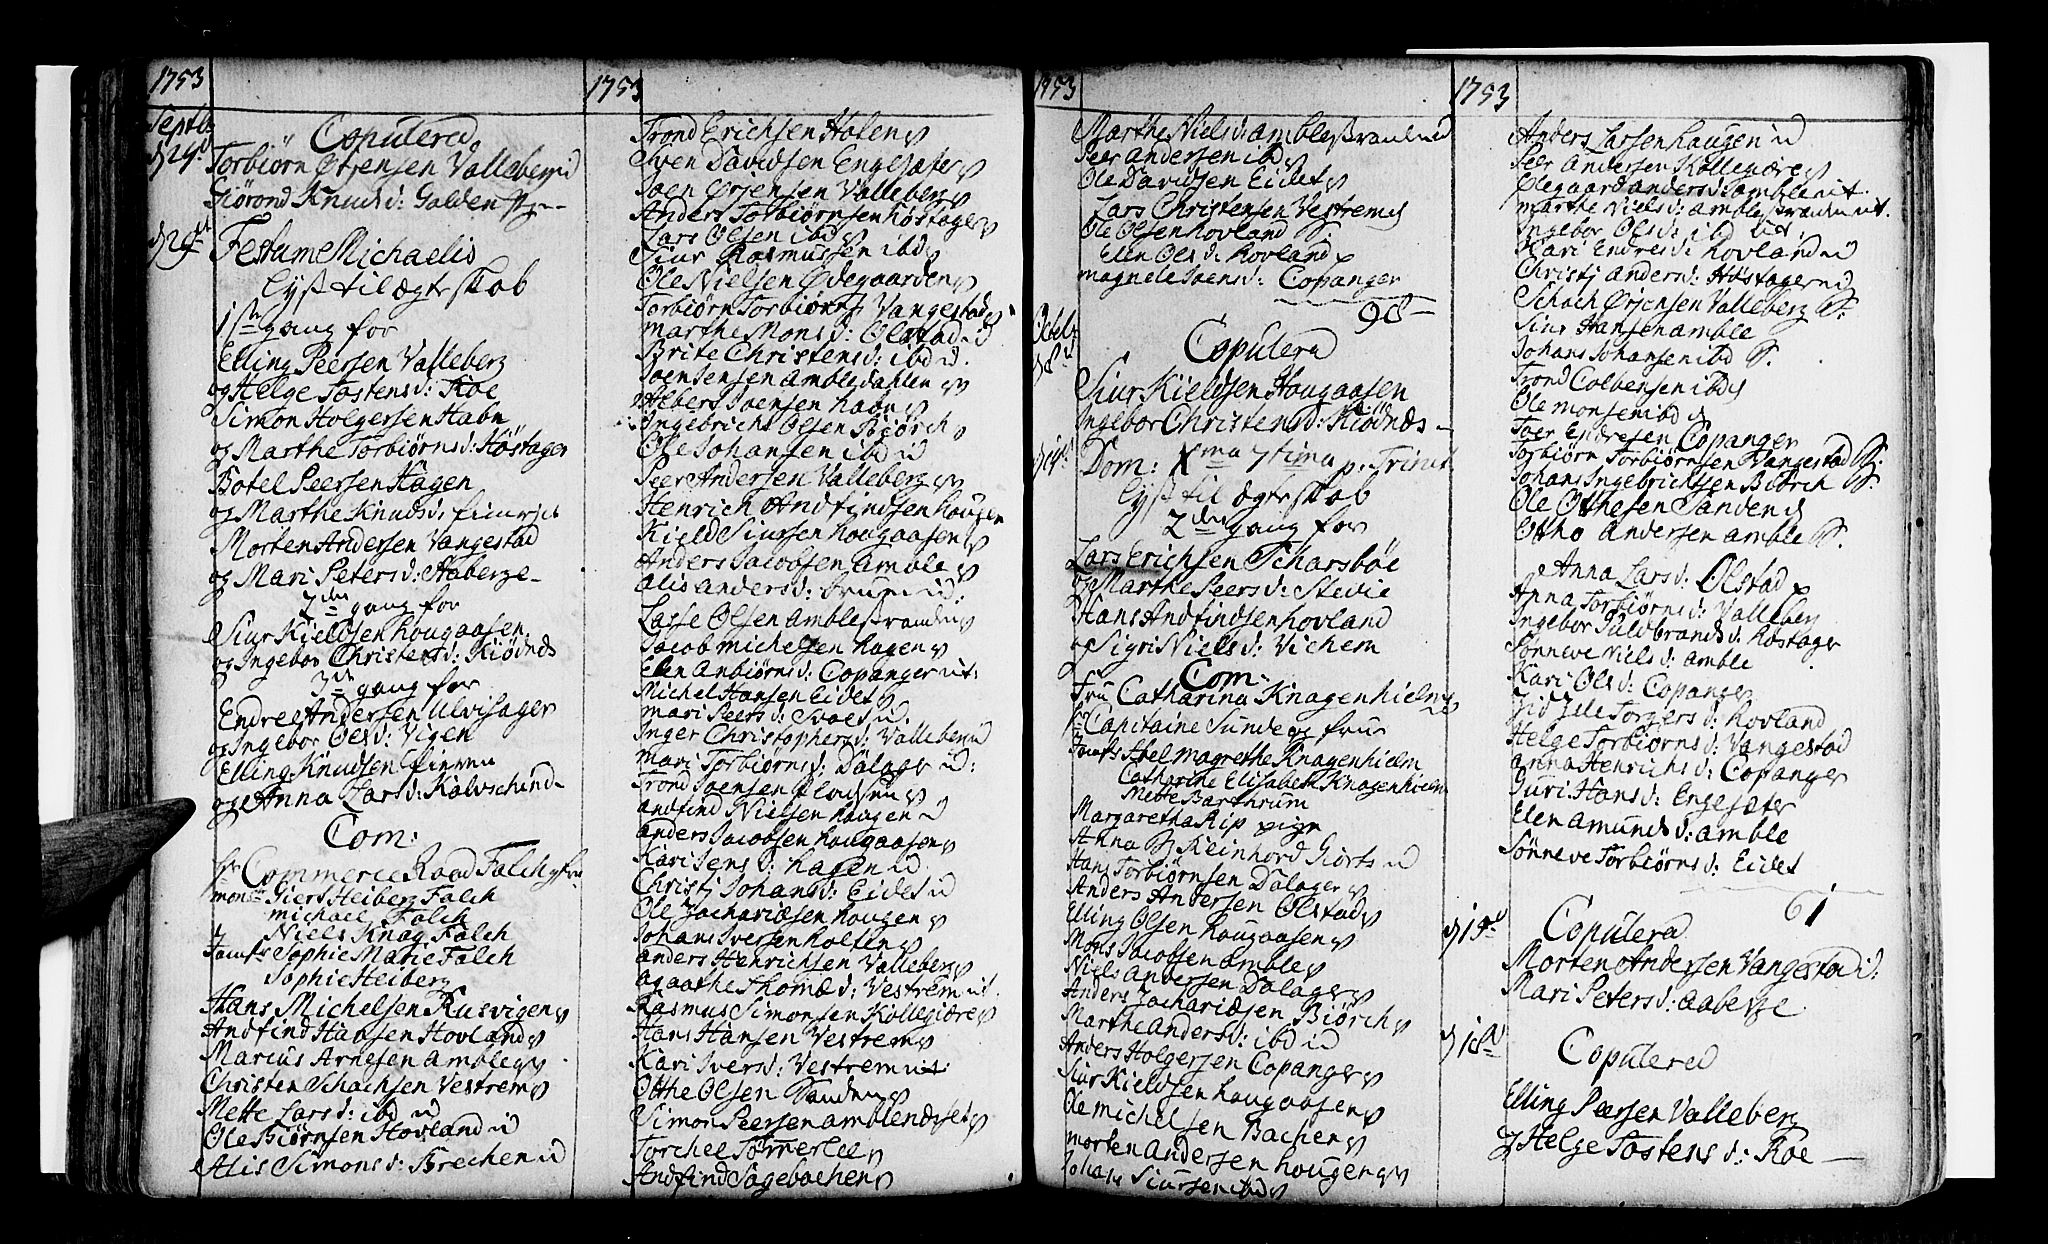 1753
Septb:
d 29d
Copulered
Torbiörn Ørjensen Valleberg id
Giörond Knuds d: Galden
d 29de
Festum Michaelis
Lyst til ægteskab
1ste gang for
Elling Peersen Valleberg
og Helge Tostens d: Roe
Simon Holgersen Habn
og Marthe Torbiörns d: Höstager
Botel Peersen Hagen
og Marthe Knuds d:
Morten Andersen Vangestad
og Mari Peters d: Aaberge
2den gang for
Siur Kieldsen Hougaasen
og Ingebor Christens d: Kiödnes
3de gang for
Endre Andersen Ulvisager
og Ingebor Ols d: Vigen
Elling Knudsen
og Anna Lars d: Kalvschind
Com:
hr Commerce Raad Falch og frue
mons: Giert Heiberg Falch
Michael Falch
Niels Knag Falch
Jomfr Sophie Marie Falch
Sophie Heiberg
Hans Michelsen Rusvigen
Andfind Hansen Hovland
Marius Arnesen Amble
Christen Schachsen Vestrem
Mette Lars d: ibd id
Ole Biörnsen Hovland id
Alis Simons d: Brechen id
1753
Trond Erichsen Holen
Sven Davidsen Engesæter
Joen Ørjensen Valleberg
Anders Torbiörnsen Höstager
Lars Olsen ibd
Siur Rasmussen ibd
Ole Nielsen Ødegaarden
Torbiörn Torbiörns Vangestad
Marthe Mons d: Olstad id
Brite Christens d: ibd id
Joen Jensen Ambledahlen
Albert Joensen Habn
Ingebricht Olsen Biörch
Ole Johansen ibd id
Peer Andersen Valleberg
Henrich Andfindsen Hougen
Kield Siursen Hougaasen
Anders Jacobsen Amble
Alis Anders d: id:
Lasse Olsen Amblestranden
Jacob Michelsen Hagen
Elen Anbiörns d: Copanger it:
Michel Hansen Eidet
Mari Peers d: id
Inger Christophers d: Valleberg id
Mari Torbiörns d: Dalager id:
Trond Joensen
Andfind Nielsen Hougen id
Anders Jacobsen Hougaasen
Kari Jens d: Hagen id
Christj Johans d: Eidet id
Ole Zachariæsen Hougen
Johans Iversen Holten
Anders Henrichsen Valleberg
Agaathe Thomæ d: Vestrem it.
Rasmus Simonsen Kollegiöre
Hans Hansen Vestrem
Kari Ivers d: Vestrem it
Otthe Olsen Sanden
Simon Peersen Amblenæset
Torchel Sömerlee
Andfind Sagebachen
1753
Marthe Niels d: Amblestrand id
Peer Andersen ibd
Ole Davidsen Eidet
Lars Christensen Vestrem
Ole Olsen Hovland S.
Elen Ols d: Hovland
Magnele Joens d: Copanger
98
Octob:
d 8d
Copulered
Siur Kieldsen Hougaasen
Ingebor Christens d: Kiödnes
d 14d
Dom: Xma 7tima p: Trinit
Lyst til ægteskab
2den gang for
Lars Erichsen Scharsböe
og Marthe Peers d: Stedie
Hans Andfindsen Hovland
og Sigri Niels d: Vichem
Com:
Fru Catharina Knagenhielm
hr Capitaine Sunde og frue
Jomfr: Abel Magrethe Knagenhielm
Catharine Elisabeth Knagenhielm
Mette Barthrum
Margaretha Rip pige
Anna Reinhord Giørts id
Hans Torbiörnsen Dalager
Anders Andersen Olstad
Elling Olsen Hougaasen
Mons Jacobsen Amble
Niels Andersen Dalager
Anders Zachariæsen Biörch
Marthe Anders d: ibd id
Anders Holgersen Copanger
Siur Kieldsen Hougaasen
Ole Michelsen Bachen
Morten Andersen Hougen
Johans Siursen ibd
1753
Anders Larsen Haugen id
Peer Andersen Kollegiöre
Olegaard Anders d: Amble it.
Marthe Niels d: Amblestranden it.
Ingebor Ols d: ibd it.
Kari Endres d: Hovland id
Christj Anders d: Höstager id
Schach Ørjensen Valleberg S:
Siur Hansen Amble
Johans Johansen ibd S.
Trond Colbensen ibd
Ole Monsen ibd
Toer Endresen Copanger
Torbiörn Torbiörnsen Vangestad S.
Johans Ingebrichtsen Biörch S.
Ole Otthesen Sanden
Ottho Andersen Amble S.
Anna Lars d: Olstad
Anna Torbiörns d: Valleberg
Ingebor Guldbrands d: Höstager
Sönneve Niels d: Amble
Kari Ols d: Copanger
Jld Torgers d: Hovland
Helge Torbiörns d: Vangestad
Anna Henrichs d: Copanger
Guri Hans d: Engesæter
Elen Amunds d: Amble
Sönneve Torbiörns d: Eidet
61
d 15d
Copulered
Morten Andersen Vangestad id:
Mari Peters d: Aaberge
d 18d
Copulered
Elling Peersen Valleberg
og Helge Tostens d: Roe